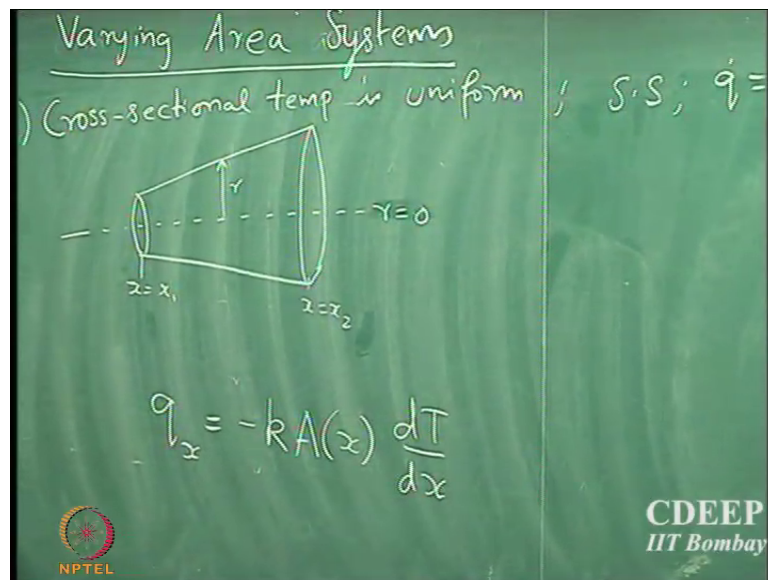 Varying Area Systems
) Cross-sectional temp is uniform ; S.S; q̇ =
r
r=0
x=x₁
x=x₂
qₓ = -kA(x) dT/dx
CDEEP
IIT Bombay
NPTEL